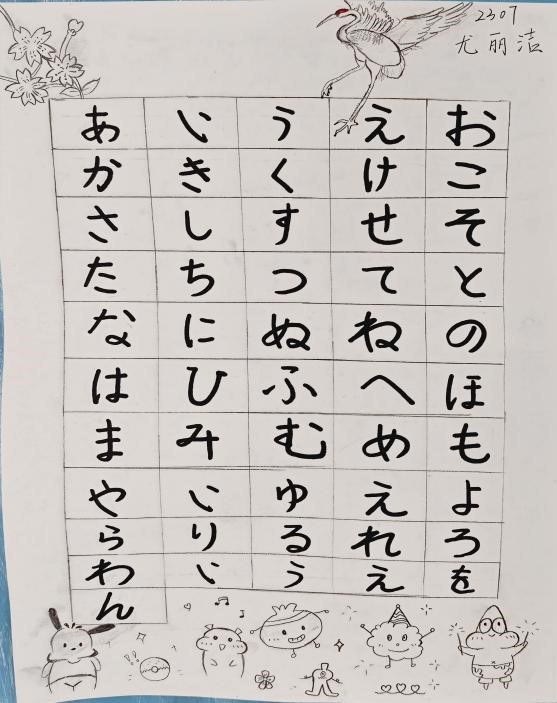 2307
尤丽洁
あ い う え お
か き く け こ
さ し す せ そ
た ち つ て と
な に ぬ ね の
は ひ ふ へ ほ
ま み む め も
や い ゆ え よ
ら り る れ ろ
わ い う え を
ん